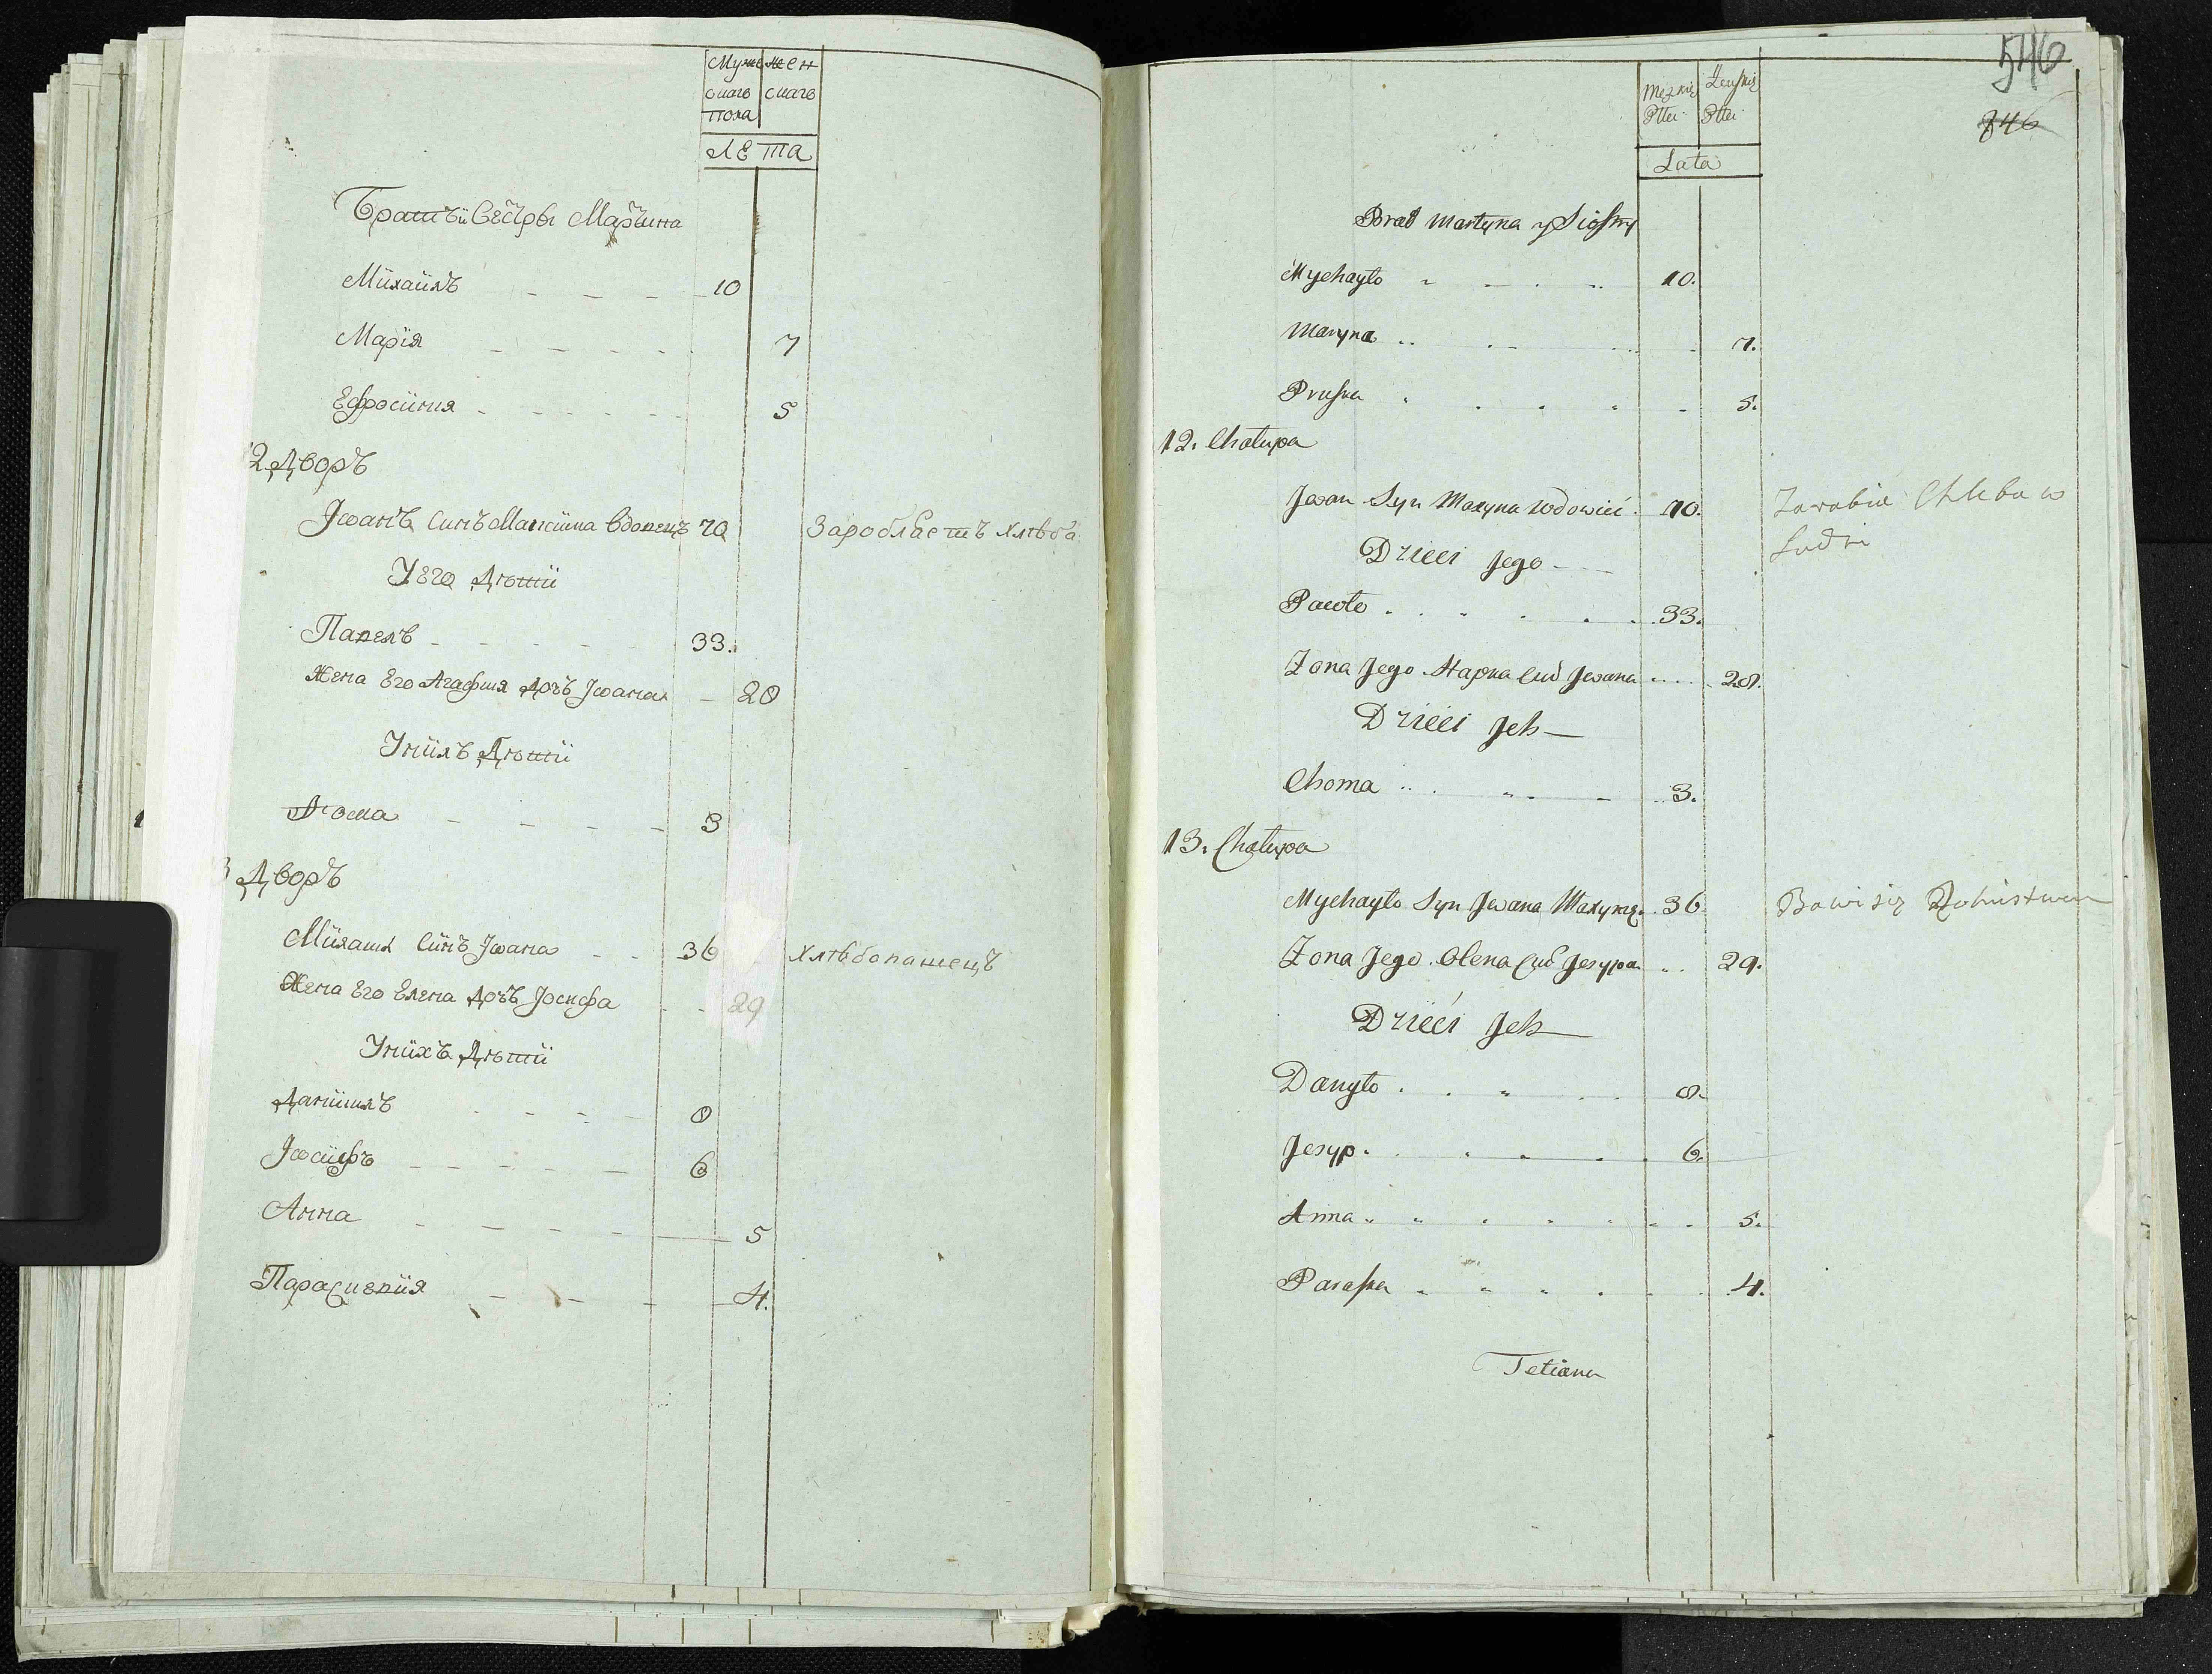 Муже жен
скаго скаго
пола
Лѣта
Братъ и Сестры Мартина
Михаилъ 10
Марїя 7
Ефросинїя 5
2 Дворъ
Іоанъ Синъ Максима вдовецъ 70 Заробляетъ хлѣба
У его Дѣти
Павелъ 33.
Жена Его Агафия Дочъ Іоана 28
У нихъ Дѣти
Фома 3
3 Дворъ
Михаил Синъ Іоана 36 хлѣбопашецъ
Жена Его Елена Дочъ Іосифа 29
У нихъ Дѣти
Данїилъ 8
Іосифъ 6
Анна 5
Параскевия 4.
546
746
Męzkiej Żeńskiej
Płci Płci
Lata
Brat Martyna y Siostry
Mychayło 10.
Maryna 7.
Pruska 5.
12. Chałupa
Jwan Syn Maxyma wdowiec 70. Zarabia Chleba w
Ludzi
Dzieci Jego
Pawło 33.
Żona Jego Hapka Cur Jwana 28.
Dzieci Jch
Choma 3.
13. Chałupa
Mychayło Syn Jwana Maxyma 36. Bawi się Rolnistwem
Żona Jego Olena Cur Josypa 29.
Dzieci Jch
Danyło 8.
Josyp. 6.
Anna 5.
Paraska 4.
Tetiana